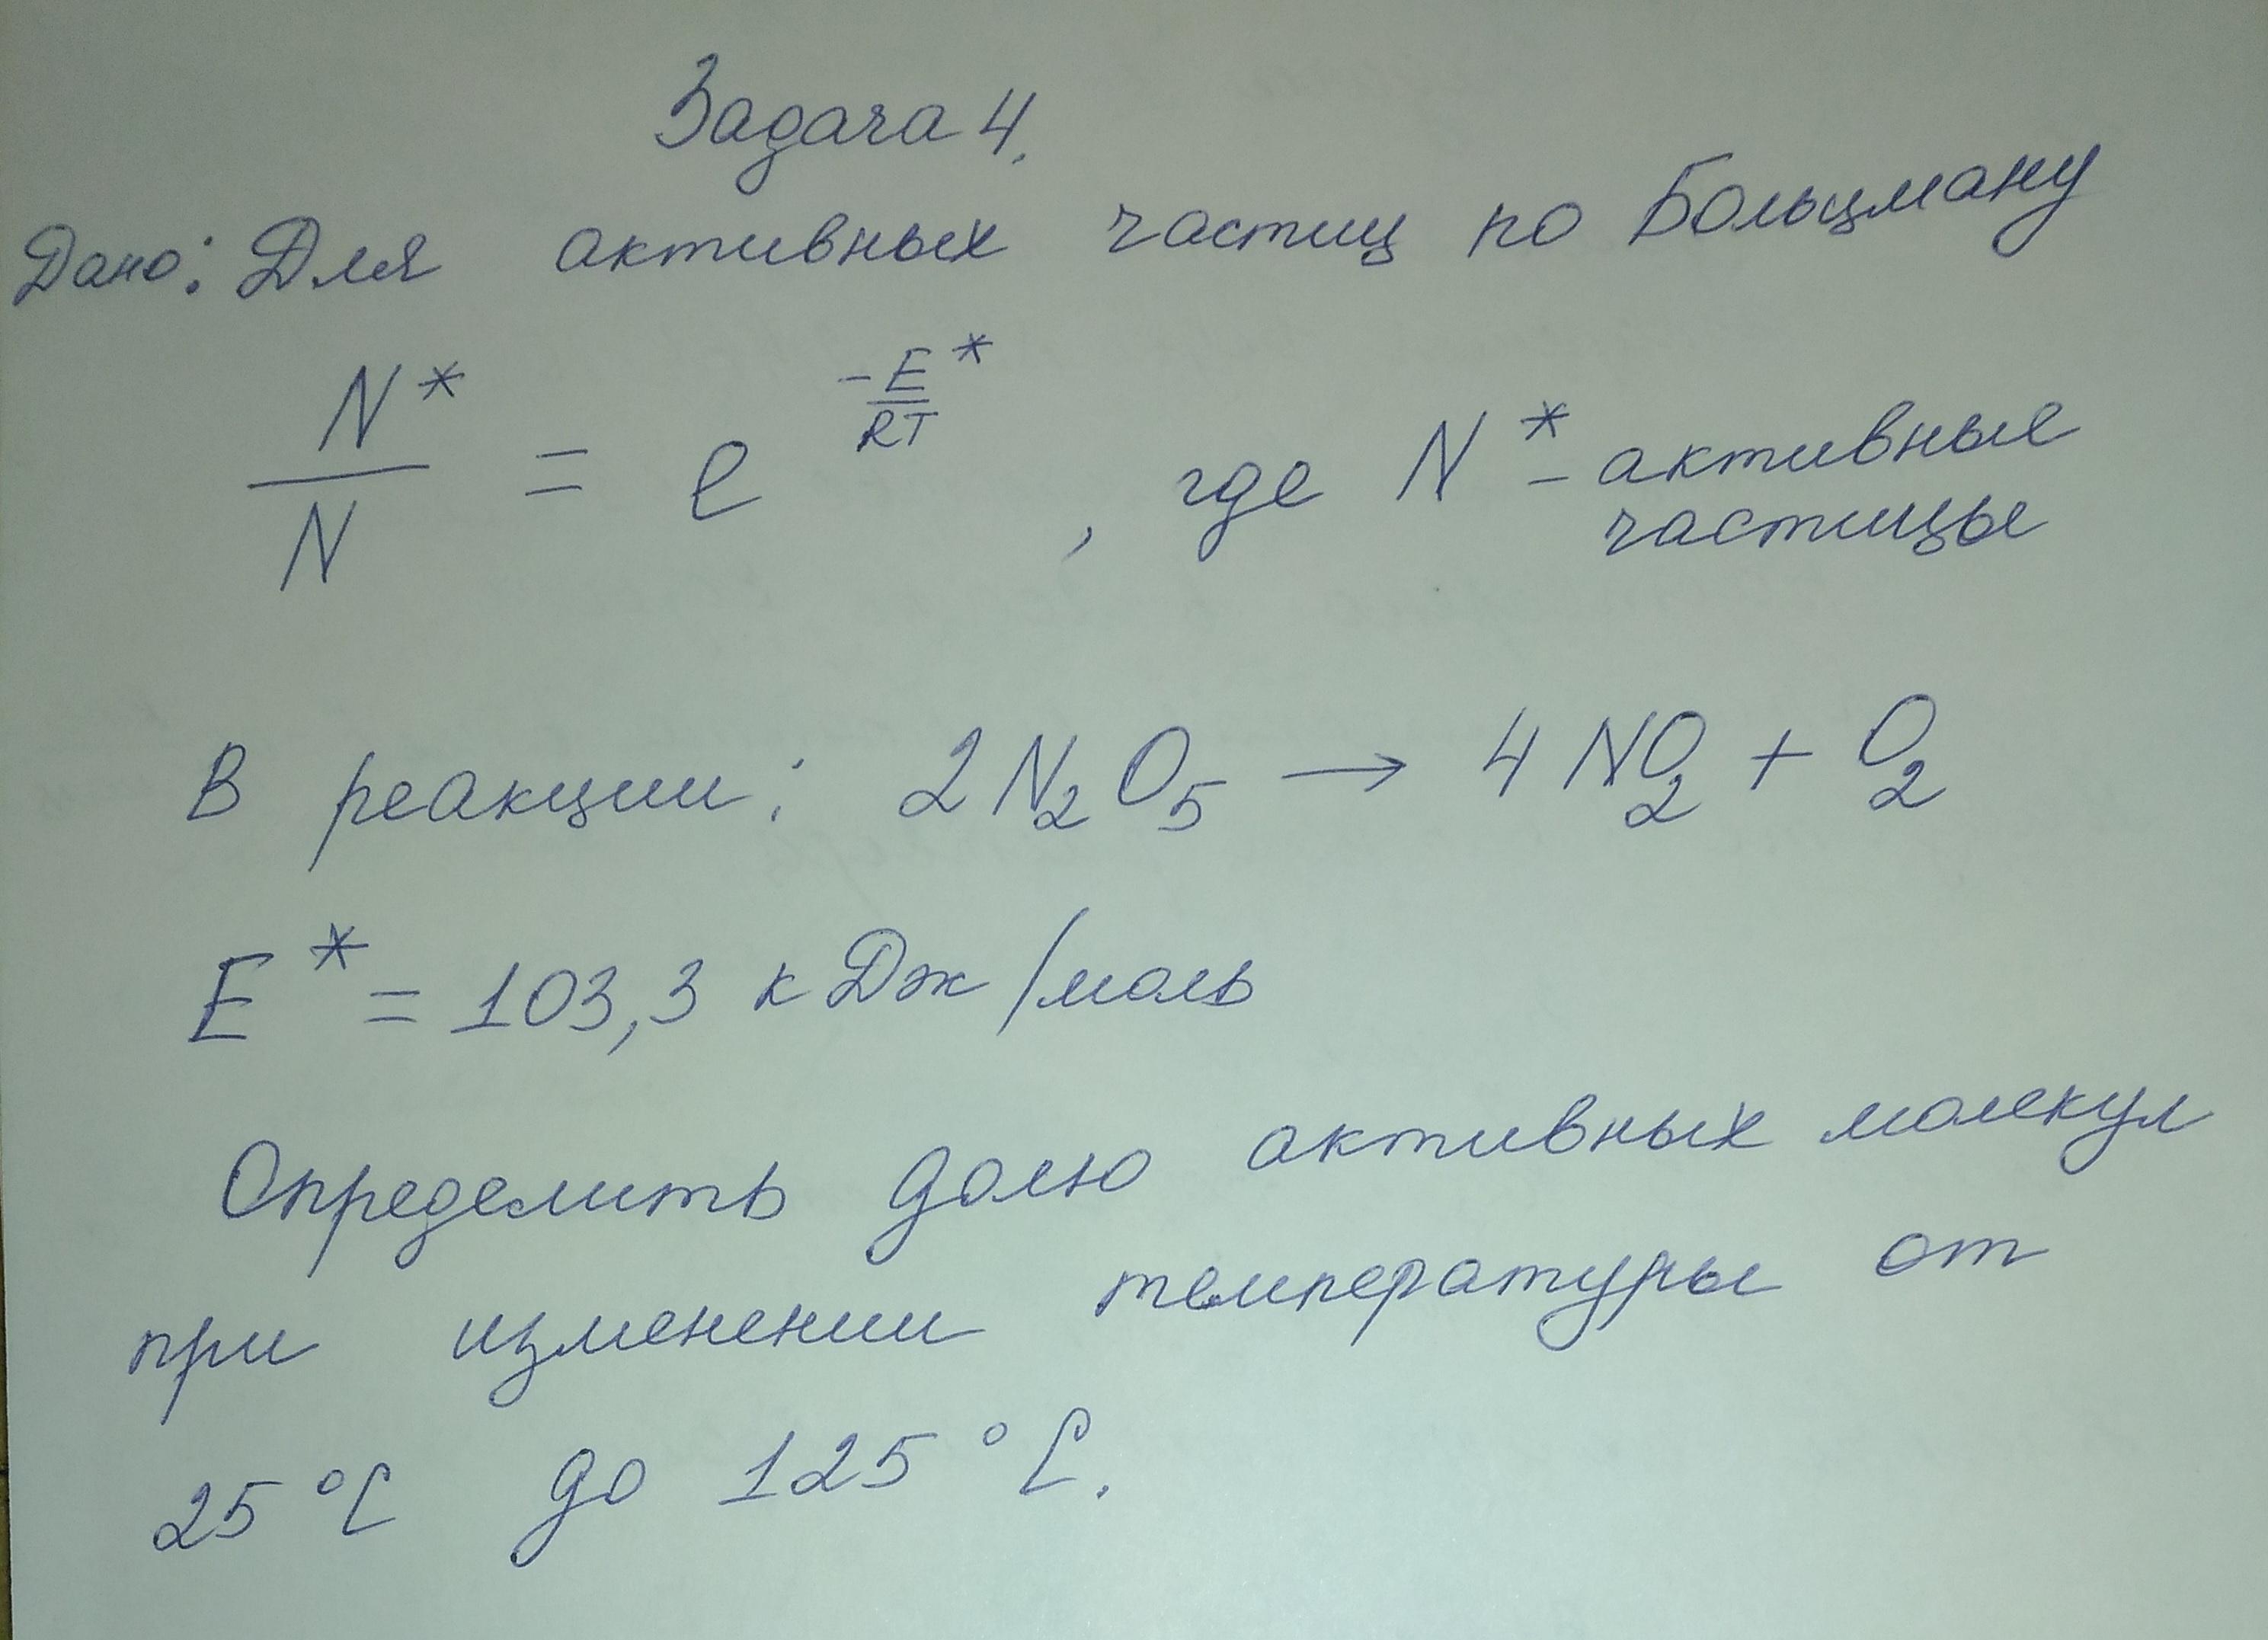 Задача 4.
Дано: Для активных частиц по Больцману
N*/N = e^(-E*/RT), где N* - активные
частицы
В реакции: 2N₂O₅ → 4NO₂ + O₂
E* = 103,3 кДж/моль
Определить долю активных молекул
при изменении температуры от
25 °C до 125 °C.